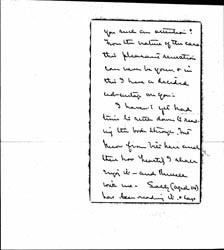 you such an attention?
From the nature of the case
this pleasant sensation
can never be yours & in
this I have a decided
advantage over you.
I haven't yet had
time to settle down to read
ing the book through, but
know from bits here and
there how heartily I shall
enjoy it – and Russell
with me. Sally (aged 10)
has been reading it & says